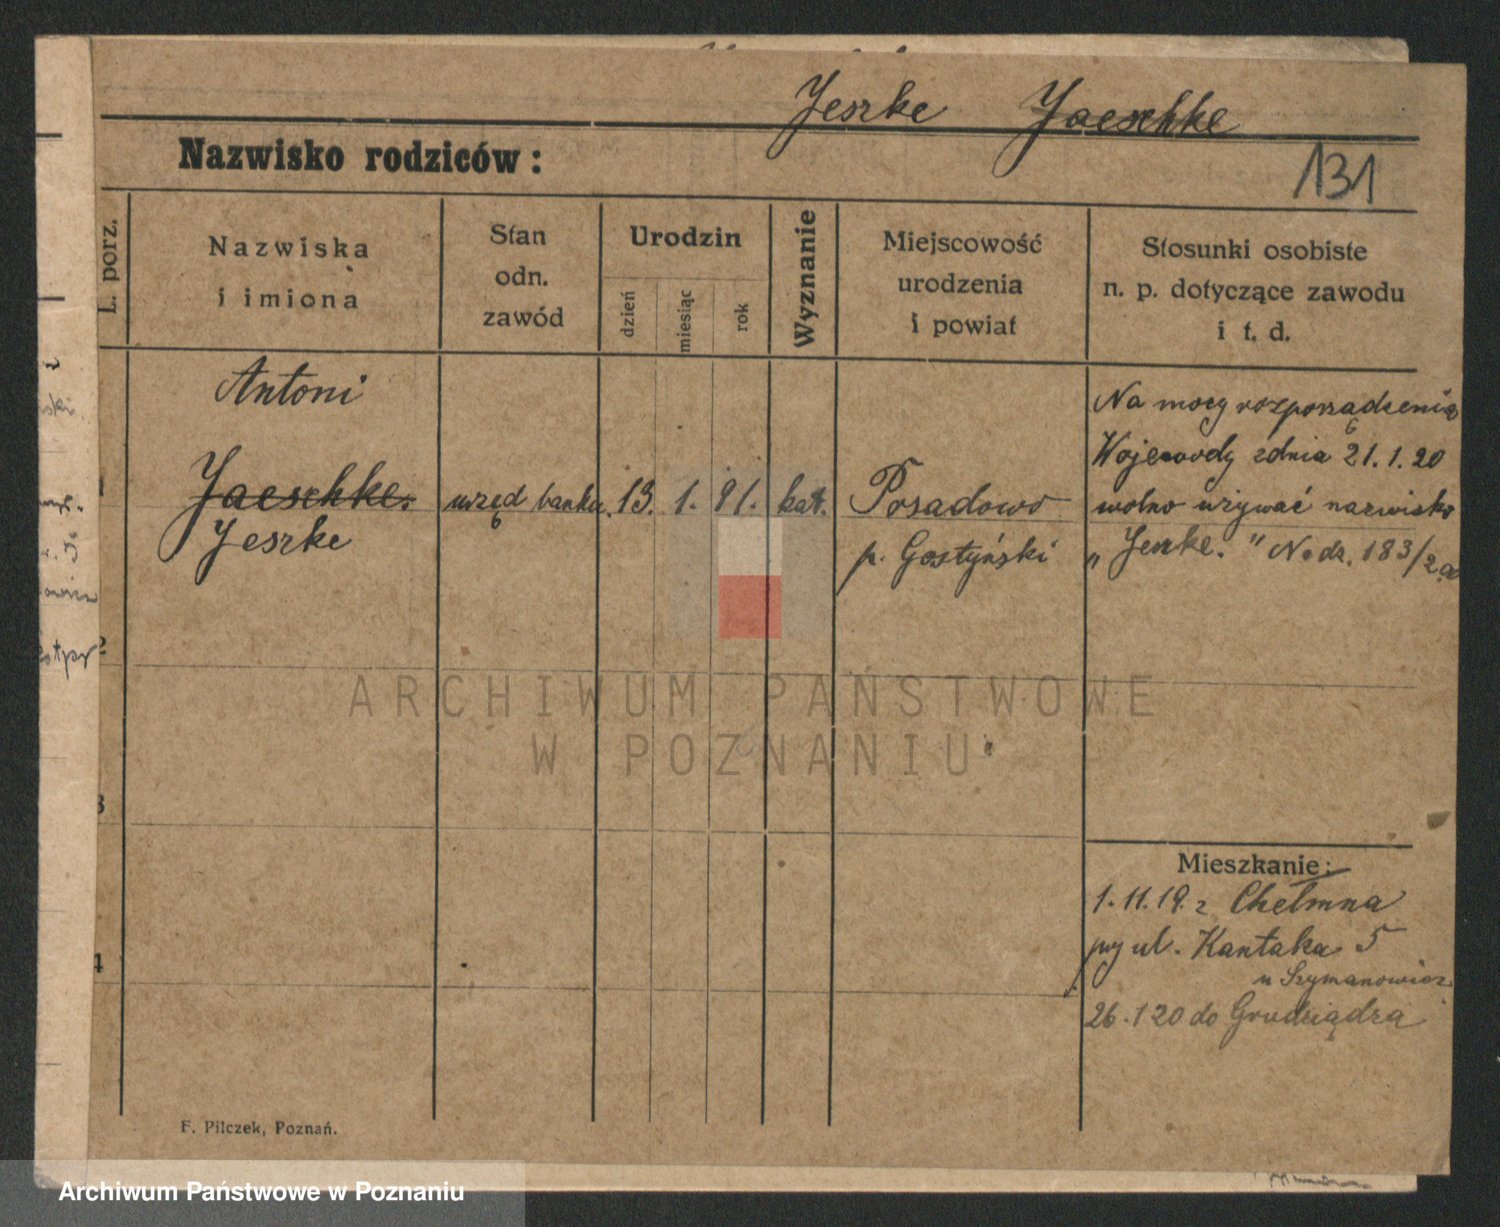 Jeszke Jaeschke
Nazwisko rodziców:
131
L. porz.
Nazwiska
i imiona
Stan
odn.
zawód
Urodzin
dzień
miesiąc
rok
Wyznanie
Miejscowość
urodzenia
i powiat
Stosunki osobiste
n. p. dotyczące zawodu
i t. d.
Antoni
Jaeschke.
Jeszke
urzęd banku.
13. 1. 91.
kat.
Posadowo
p. Gostyński
Na mocy rozporządzenia
Wojewody zdnia 21.1.20
wolno używać nazwisko
„Jeszke." No dz. 183/20
2
3
4
Mieszkanie:
1.11.19. z Chełmna
przy ul. Kantaka 5
u Szymanowicz
26.1 20 do Grudziądza
F. Pilczek, Poznań.
ARCHIWUM PAŃSTWOWE
W POZNANIU
Archiwum Państwowe w Poznaniu